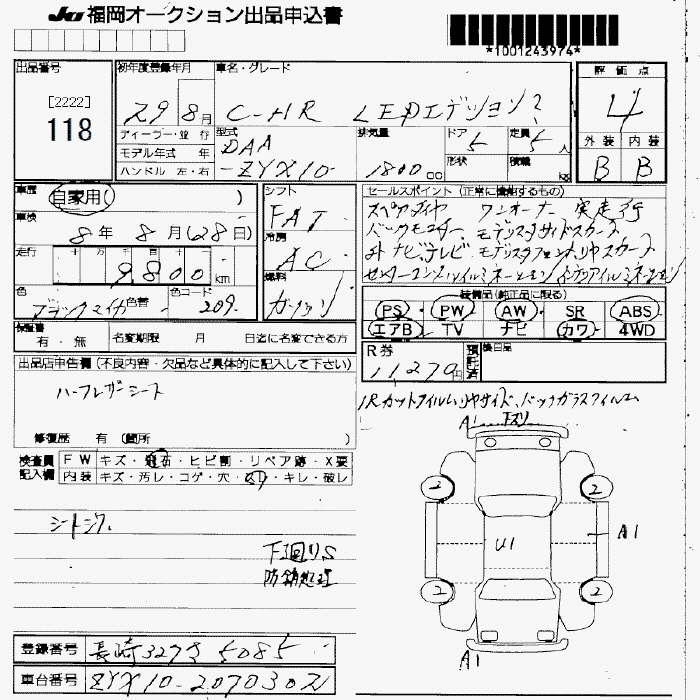 JU 福岡オークション出品申込書
*1001243974*
出品番号 初年度登録年月 車名・グレード 評価点
[2222]
118
29 8月 C-HR LEDエディション 4
ディーラー・並行 型式 排気量 ドア 定員 外装 内装
モデル年式 年 DAA 5 5人
ハンドル 左・右 -ZYX10- 1800cc 形状 積載 kg B B
車歴 自家用( ) シフト セールスポイント (正常に機能するもの)
車検 8年 8月(28日) FAT スペアタイヤ ワンオーナー 実走行
冷房 バックモニター モデリスタサイドスカート
走行 十 万 千 百 十 AC 外ナビ テレビ モデリスタフロント、リヤスカート
9800km 燃料
色 ブラックマイカ 色替 色コード 209 ガソリン 装備品(純正品に限る)
PS PW AW SR ABS
エアB TV ナビ カワ 4WD
保証書 有・無 名変期限 月 日迄に名変できる方
R券 11270円 預託済 後日品
出品店申告欄 (不良内容・欠品など具体的に記入して下さい)
ハーフレザーシート
IRカットフィルム、リヤサイド、バックガラスフィルム
修復歴 有 (箇所 )
検査員記入欄 FW キズ・飛石・ヒビ割・リペア跡・X要
内装 キズ・汚レ・コゲ・穴・キレ・破レ
シートシワ
下回りS
防錆処理
A1 下スリ
2 2
U1 A1
2 2
A1
登録番号 長崎 327 さ 5085
車台番号 ZYX10-2070302